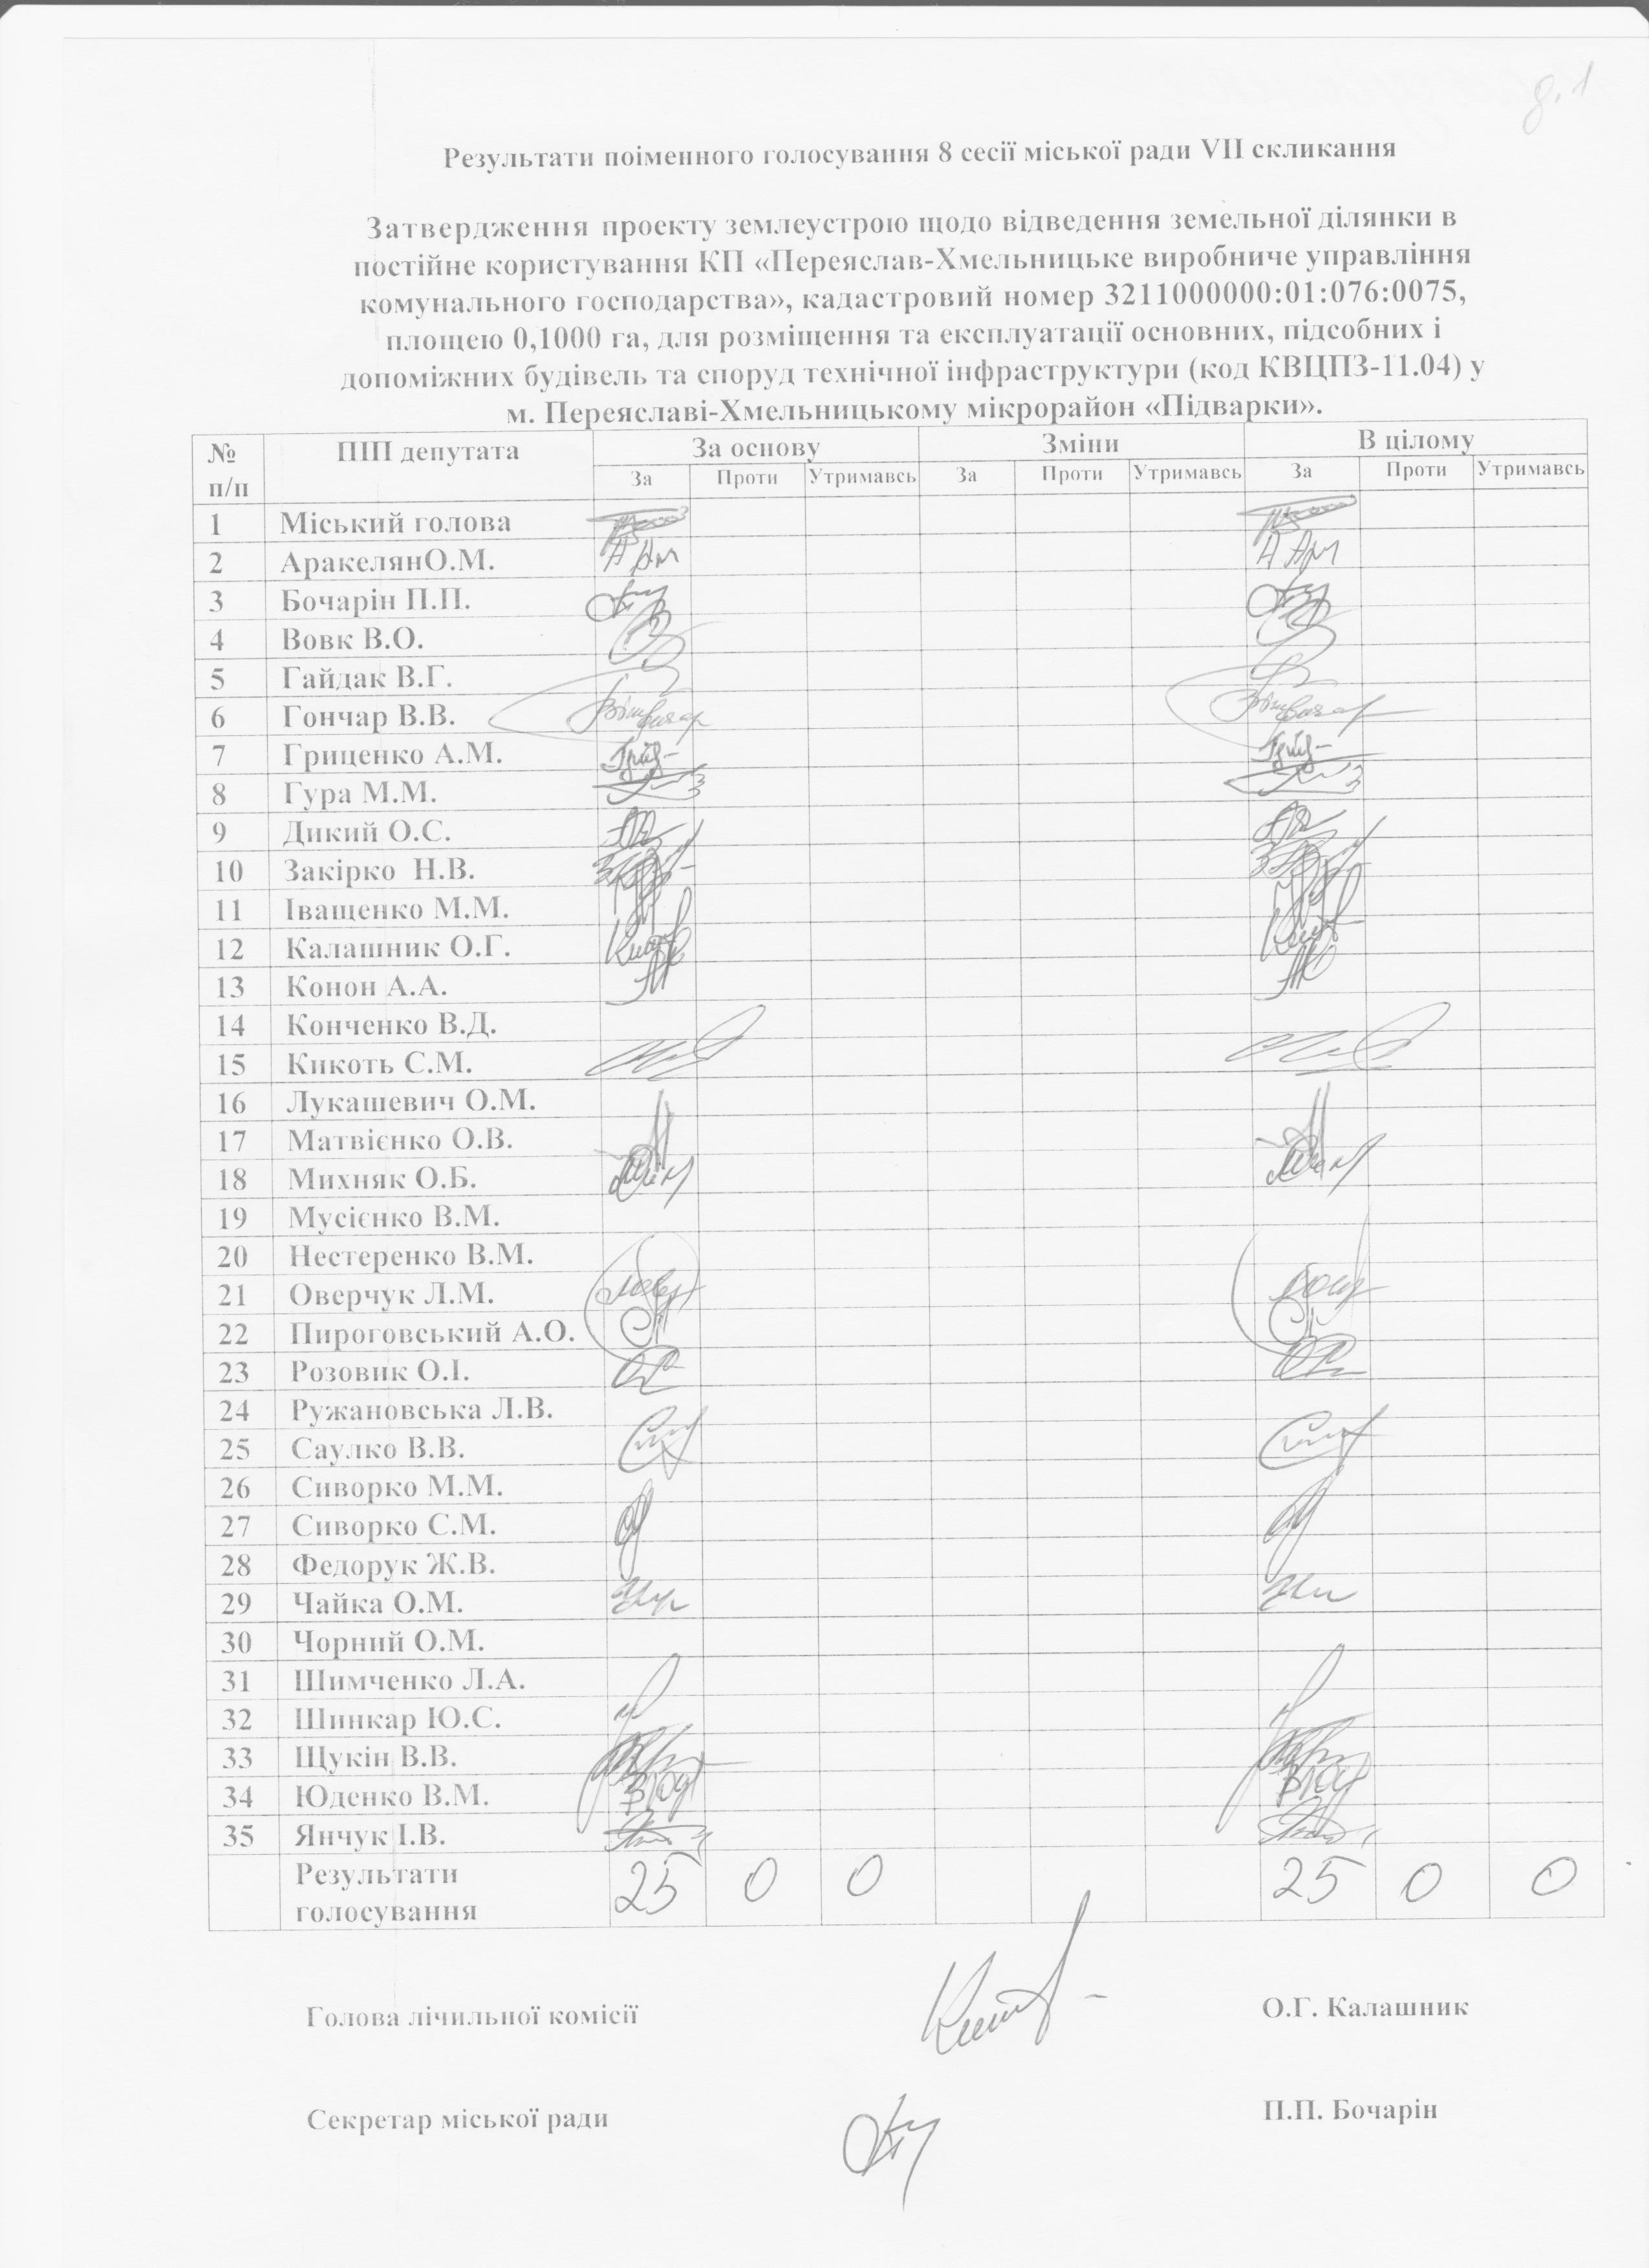 д. 1
Результати поіменного голосування 8 сесії міської ради VII скликання
Затвердження проекту землеустрою щодо відведення земельної ділянки в
постійне користування КП «Переяслав-Хмельницьке виробниче управління
комунального господарства», кадастровий номер 3211000000:01:076:0075,
площею 0,1000 га, для розміщення та експлуатації основних, підсобних і
допоміжних будівель та споруд технічної інфраструктури (код КВЦПЗ-11.04) у
м. Переяславі-Хмельницькому мікрорайон «Підварки».
№ п/п ПІП депутата За основу Зміни В цілому
За Проти Утримавсь За Проти Утримавсь За Проти Утримавсь
1 Міський голова
2 АракелянО.М.
3 Бочарін П.П.
4 Вовк В.О.
5 Гайдак В.Г.
6 Гончар В.В.
7 Гриценко А.М.
8 Гура М.М.
9 Дикий О.С.
10 Закірко Н.В.
11 Іващенко М.М.
12 Калашник О.Г.
13 Конон А.А.
14 Конченко В.Д.
15 Кикоть С.М.
16 Лукашевич О.М.
17 Матвієнко О.В.
18 Михняк О.Б.
19 Мусієнко В.М.
20 Нестеренко В.М.
21 Оверчук Л.М.
22 Пироговський А.О.
23 Розовик О.І.
24 Ружановська Л.В.
25 Саулко В.В.
26 Сиворко М.М.
27 Сиворко С.М.
28 Федорук Ж.В.
29 Чайка О.М.
30 Чорний О.М.
31 Шимченко Л.А.
32 Шинкар Ю.С.
33 Щукін В.В.
34 Юденко В.М.
35 Янчук І.В.
Результати голосування 25 0 0 25 0 0
Голова лічильної комісії О.Г. Калашник
Секретар міської ради П.П. Бочарін